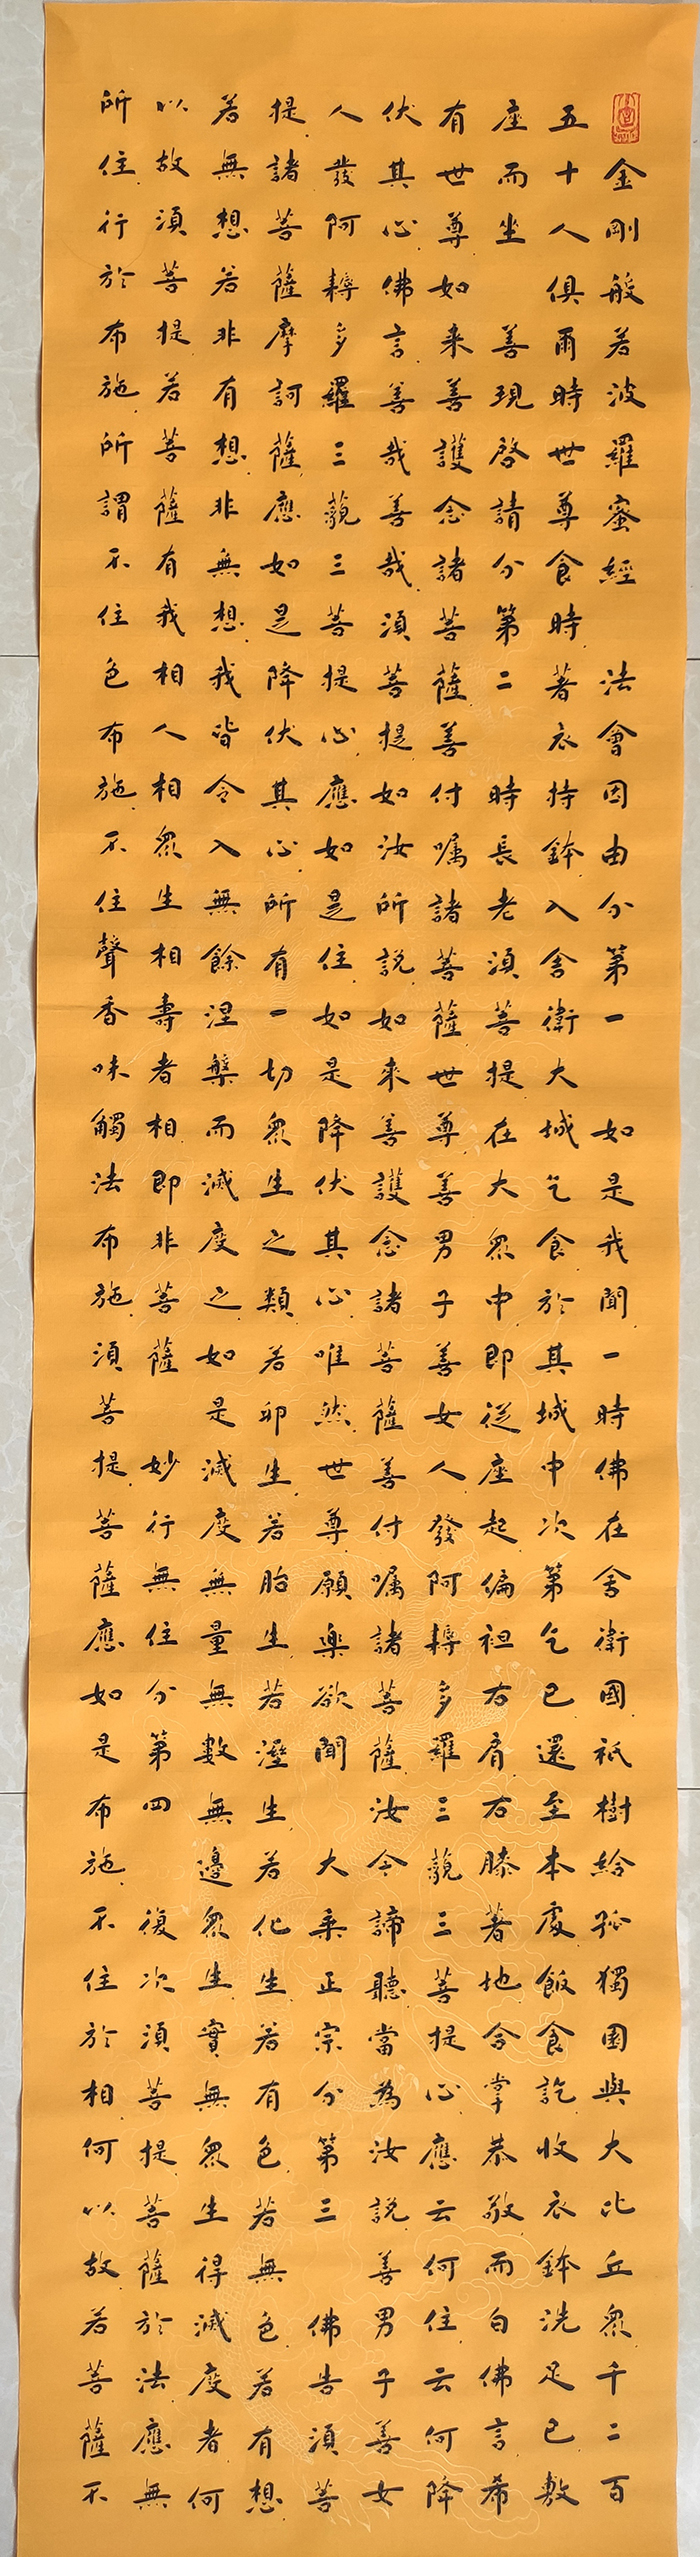 金剛般若波羅蜜經 法會因由分第一 如是我聞一時佛在舍衛國祇樹給孤獨園與大比丘眾千二百
五十人俱爾時世尊食時著衣持鉢入舍衛大城乞食於其城中次第乞已還至本處飯食訖收衣鉢洗足已敷
座而坐 善現啓請分第二 時長老須菩提在大眾中即從座起偏袒右肩右膝著地合掌恭敬而白佛言希
有世尊如来善護念諸菩薩善付嘱諸菩薩世尊善男子善女人發阿耨多羅三藐三菩提心應云何住云何降
伏其心佛言善哉善哉須菩提如汝所説如来善護念諸菩薩善付嘱諸菩薩汝今諦聽當為汝説善男子善女
人發阿耨多羅三藐三菩提心應如是住如是降伏其心唯然世尊願樂欲聞 大乘正宗分第三 佛告須菩
提諸菩薩摩訶薩應如是降伏其心所有一切眾生之類若卵生若胎生若溼生若化生若有色若無色若有想
若無想若非有想非無想我皆令入無餘涅槃而滅度之如是滅度無量無數無邊眾生實無眾生得滅度者何
以故須菩提若菩薩有我相人相眾生相壽者相即非菩薩 妙行無住分第四 復次須菩提菩薩於法應無
所住行於布施所謂不住色布施不住聲香味觸法布施須菩提菩薩應如是布施不住於相何以故若菩薩不